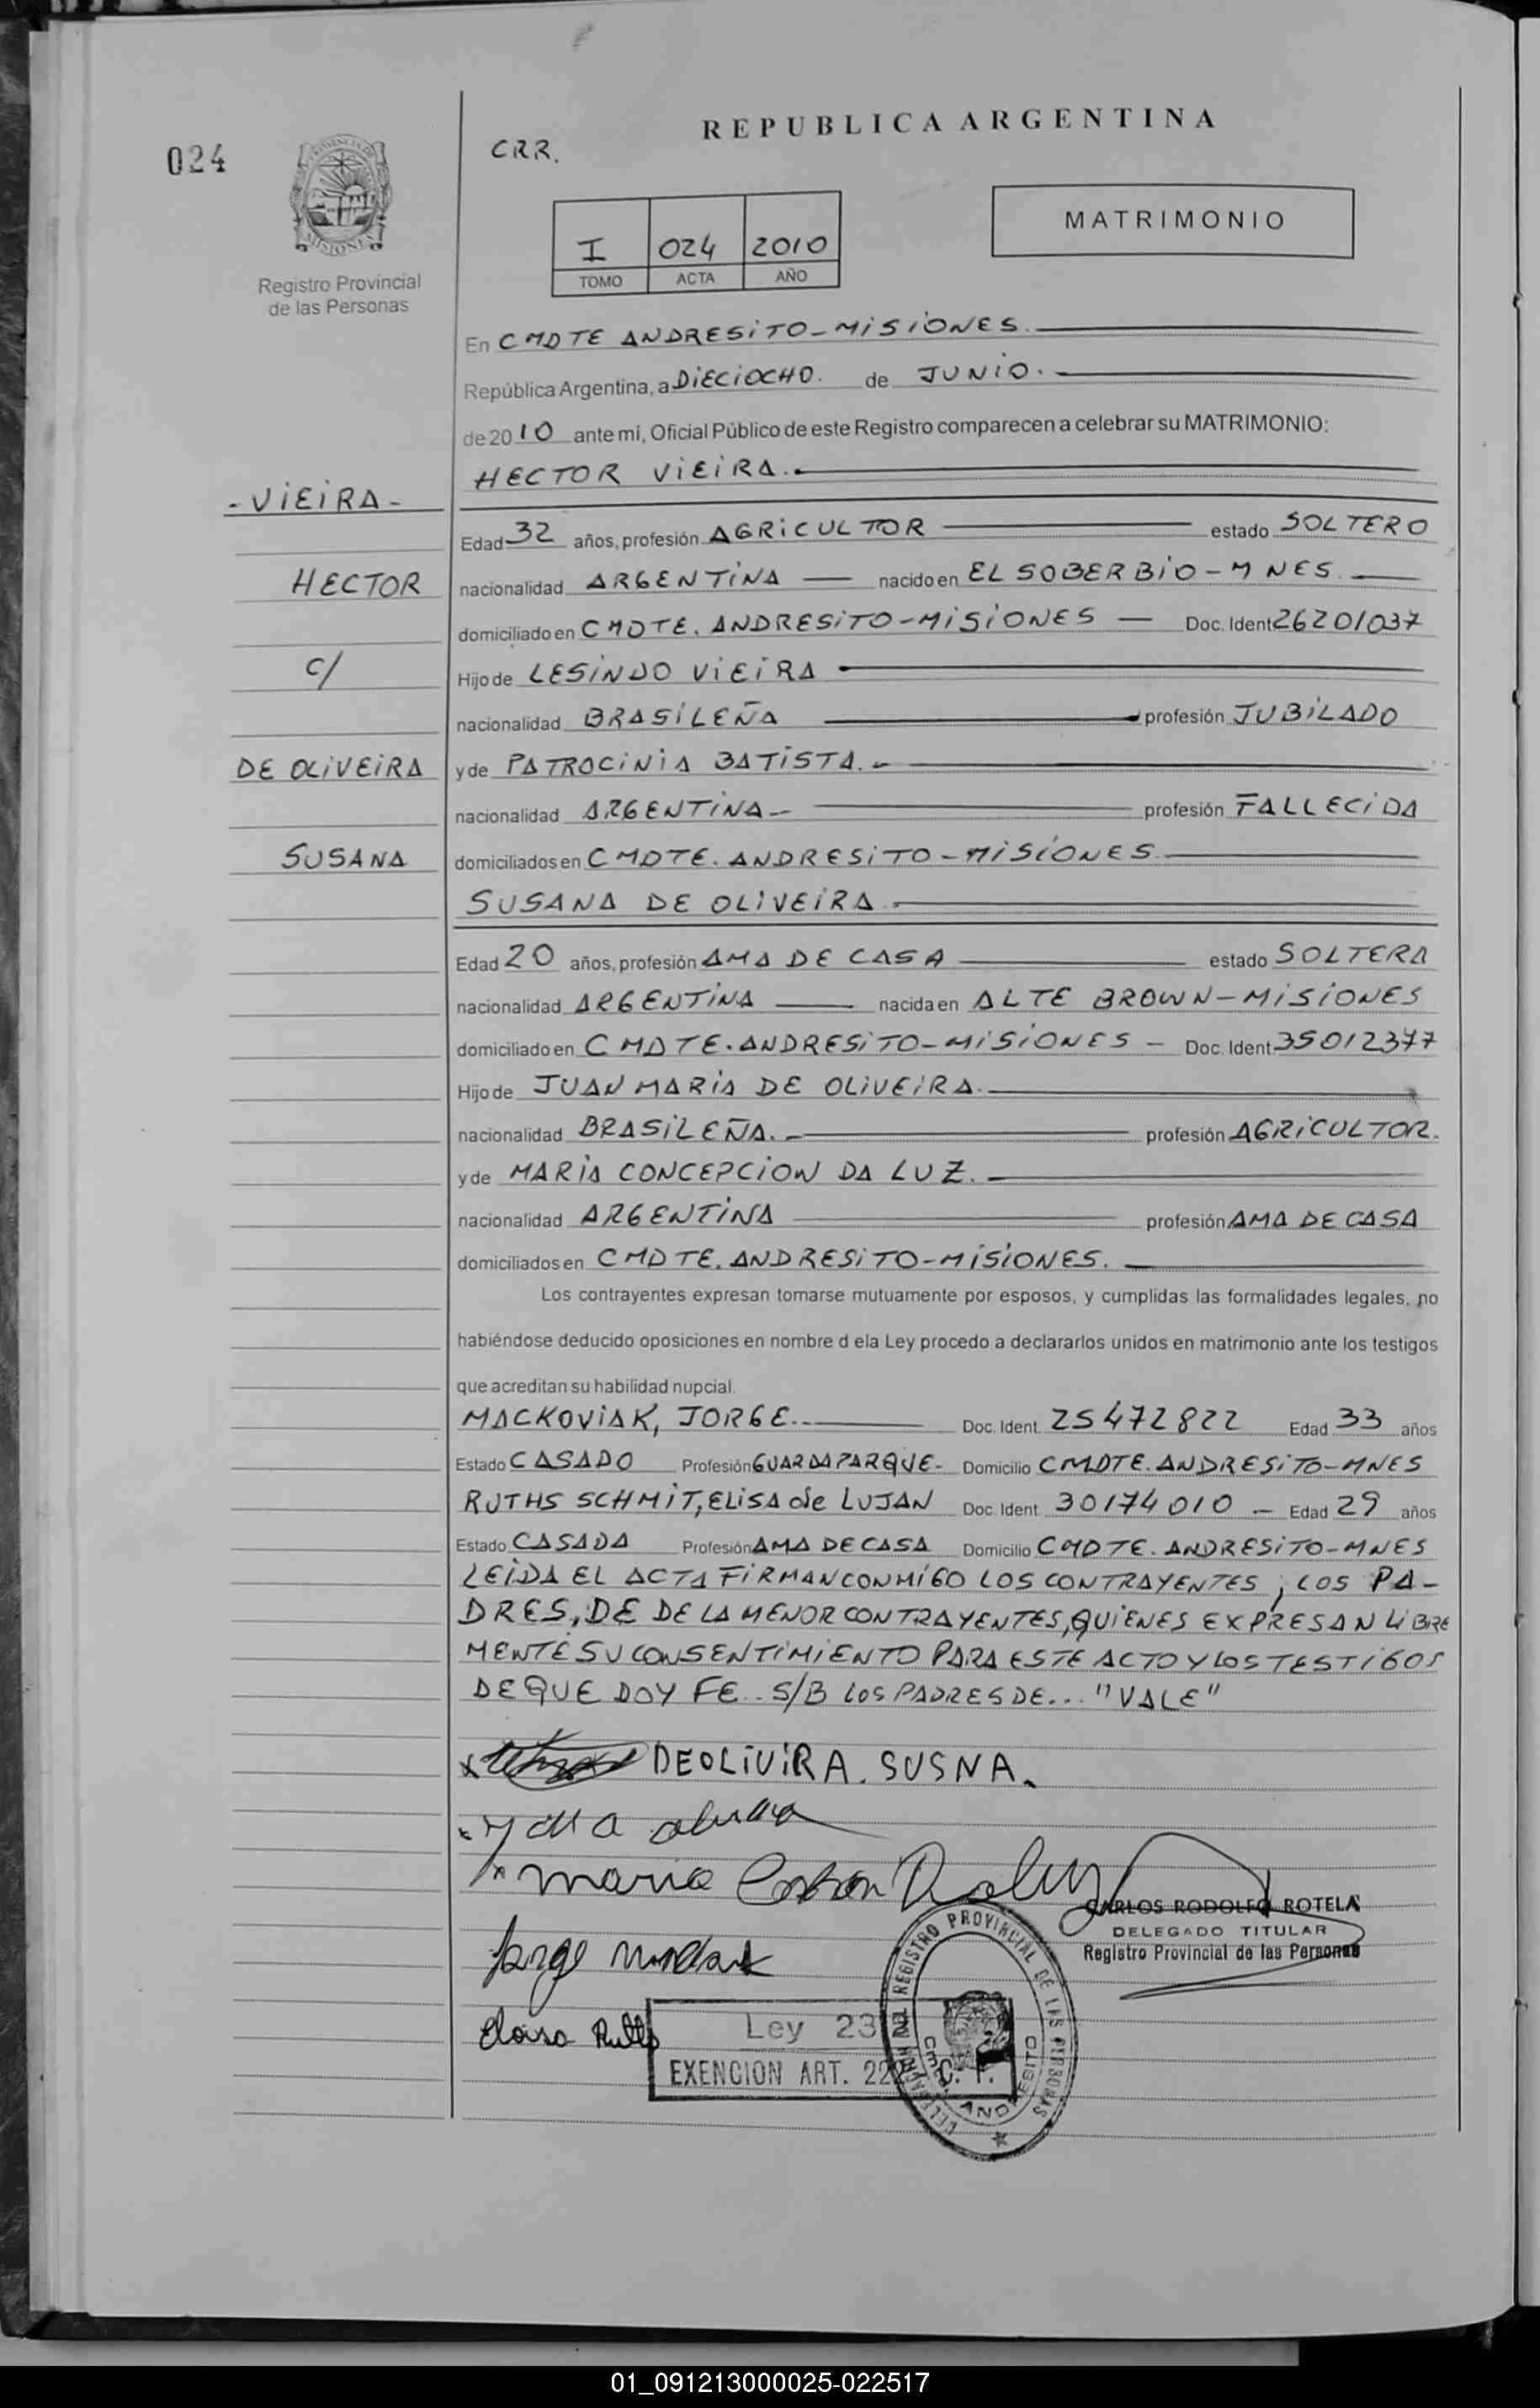 REPUBLICA ARGENTINA
024
CRR.
MATRIMONIO
I 024 2010
TOMO ACTA AÑO
Registro Provincial
de las Personas
En CMDTE ANDRESiTO-MiSiONES.
República Argentina, a DiECiOCHO. de JUNiO.
de 2010 ante mi, Oficial Público de este Registro comparecen a celebrar su MATRIMONIO:
HECTOR ViEiRA.
-ViEiRA-
Edad 32 años, profesión AGRiCULTOR estado SOLTERO
HECTOR
nacionalidad ARGENTiNA nacido en EL SOBERBiO-MNES.
domiciliado en CMDTE. ANDRESiTO-MiSiONES Doc. Ident 26201037
C/
Hijo de LESiNDO ViEiRA
nacionalidad BRASiLEÑA profesión JUBiLADO
DE OLiVEiRA
y de PATROCiNiA BATiSTA.
nacionalidad ARGENTiNA profesión FALLECiDA
SUSANA
domiciliados en CMDTE. ANDRESiTO-MiSiONES
SUSANA DE OLiVEiRA
Edad 20 años, profesión AMA DE CASA estado SOLTERA
nacionalidad ARGENTiNA nacida en ALTE BROWN-MiSiONES
domiciliado en CMDTE. ANDRESiTO-MiSiONES - Doc. Ident. 35012377
Hijo de JUAN MARiA DE OLiVEiRA
nacionalidad BRASiLEÑA. profesión AGRiCULTOR.
y de MARiA CONCEPCiON DA LUZ.
nacionalidad ARGENTiNA profesión AMA DE CASA
domiciliados en CMDTE. ANDRESiTO-MiSiONES.
Los contrayentes expresan tomarse mutuamente por esposos, y cumplidas las formalidades legales, no
habiéndose deducido oposiciones en nombre d ela Ley procedo a declararlos unidos en matrimonio ante los testigos
que acreditan su habilidad nupcial.
MACKOViAK, JORGE. Doc. Ident. 25472822 Edad 33 años
Estado CASADO Profesión GUARDAPARQUE- Domicilio CMDTE. ANDRESiTO-MNES
RUTHS SCHMiT, ELiSA de LUJAN Doc. Ident 30174010 - Edad 29 años
Estado CASADA Profesión AMA DE CASA Domicilio CMDTE. ANDRESiTO-MNES
LEiDA EL ACTA FiRMAN CONMiGO LOS CONTRAYENTES, LOS PA-
DRES, DE DE LA MENOR CONTRAYENTES, QUiENES EXPRESAN LiBRE
MENTE SU CONSENTiMiENTO PARA ESTE ACTO Y LOS TESTiGOS
DE QUE DOY FE. S/B LOS PADRES DE... "VALE"
DEOLiViRA. SUSNA.
maria
CARLOS RODOLFO ROTELA
DELEGADO TITULAR
Registro Provincial de las Personas
Jorge
Elaisa Ruths
Ley 23
EXENCION ART. 22 C. F.
DELEGACION DEL REGISTRO PROVINCIAL DE LAS PERSONAS
CMDTE. ANDRESITO
01_091213000025-022517